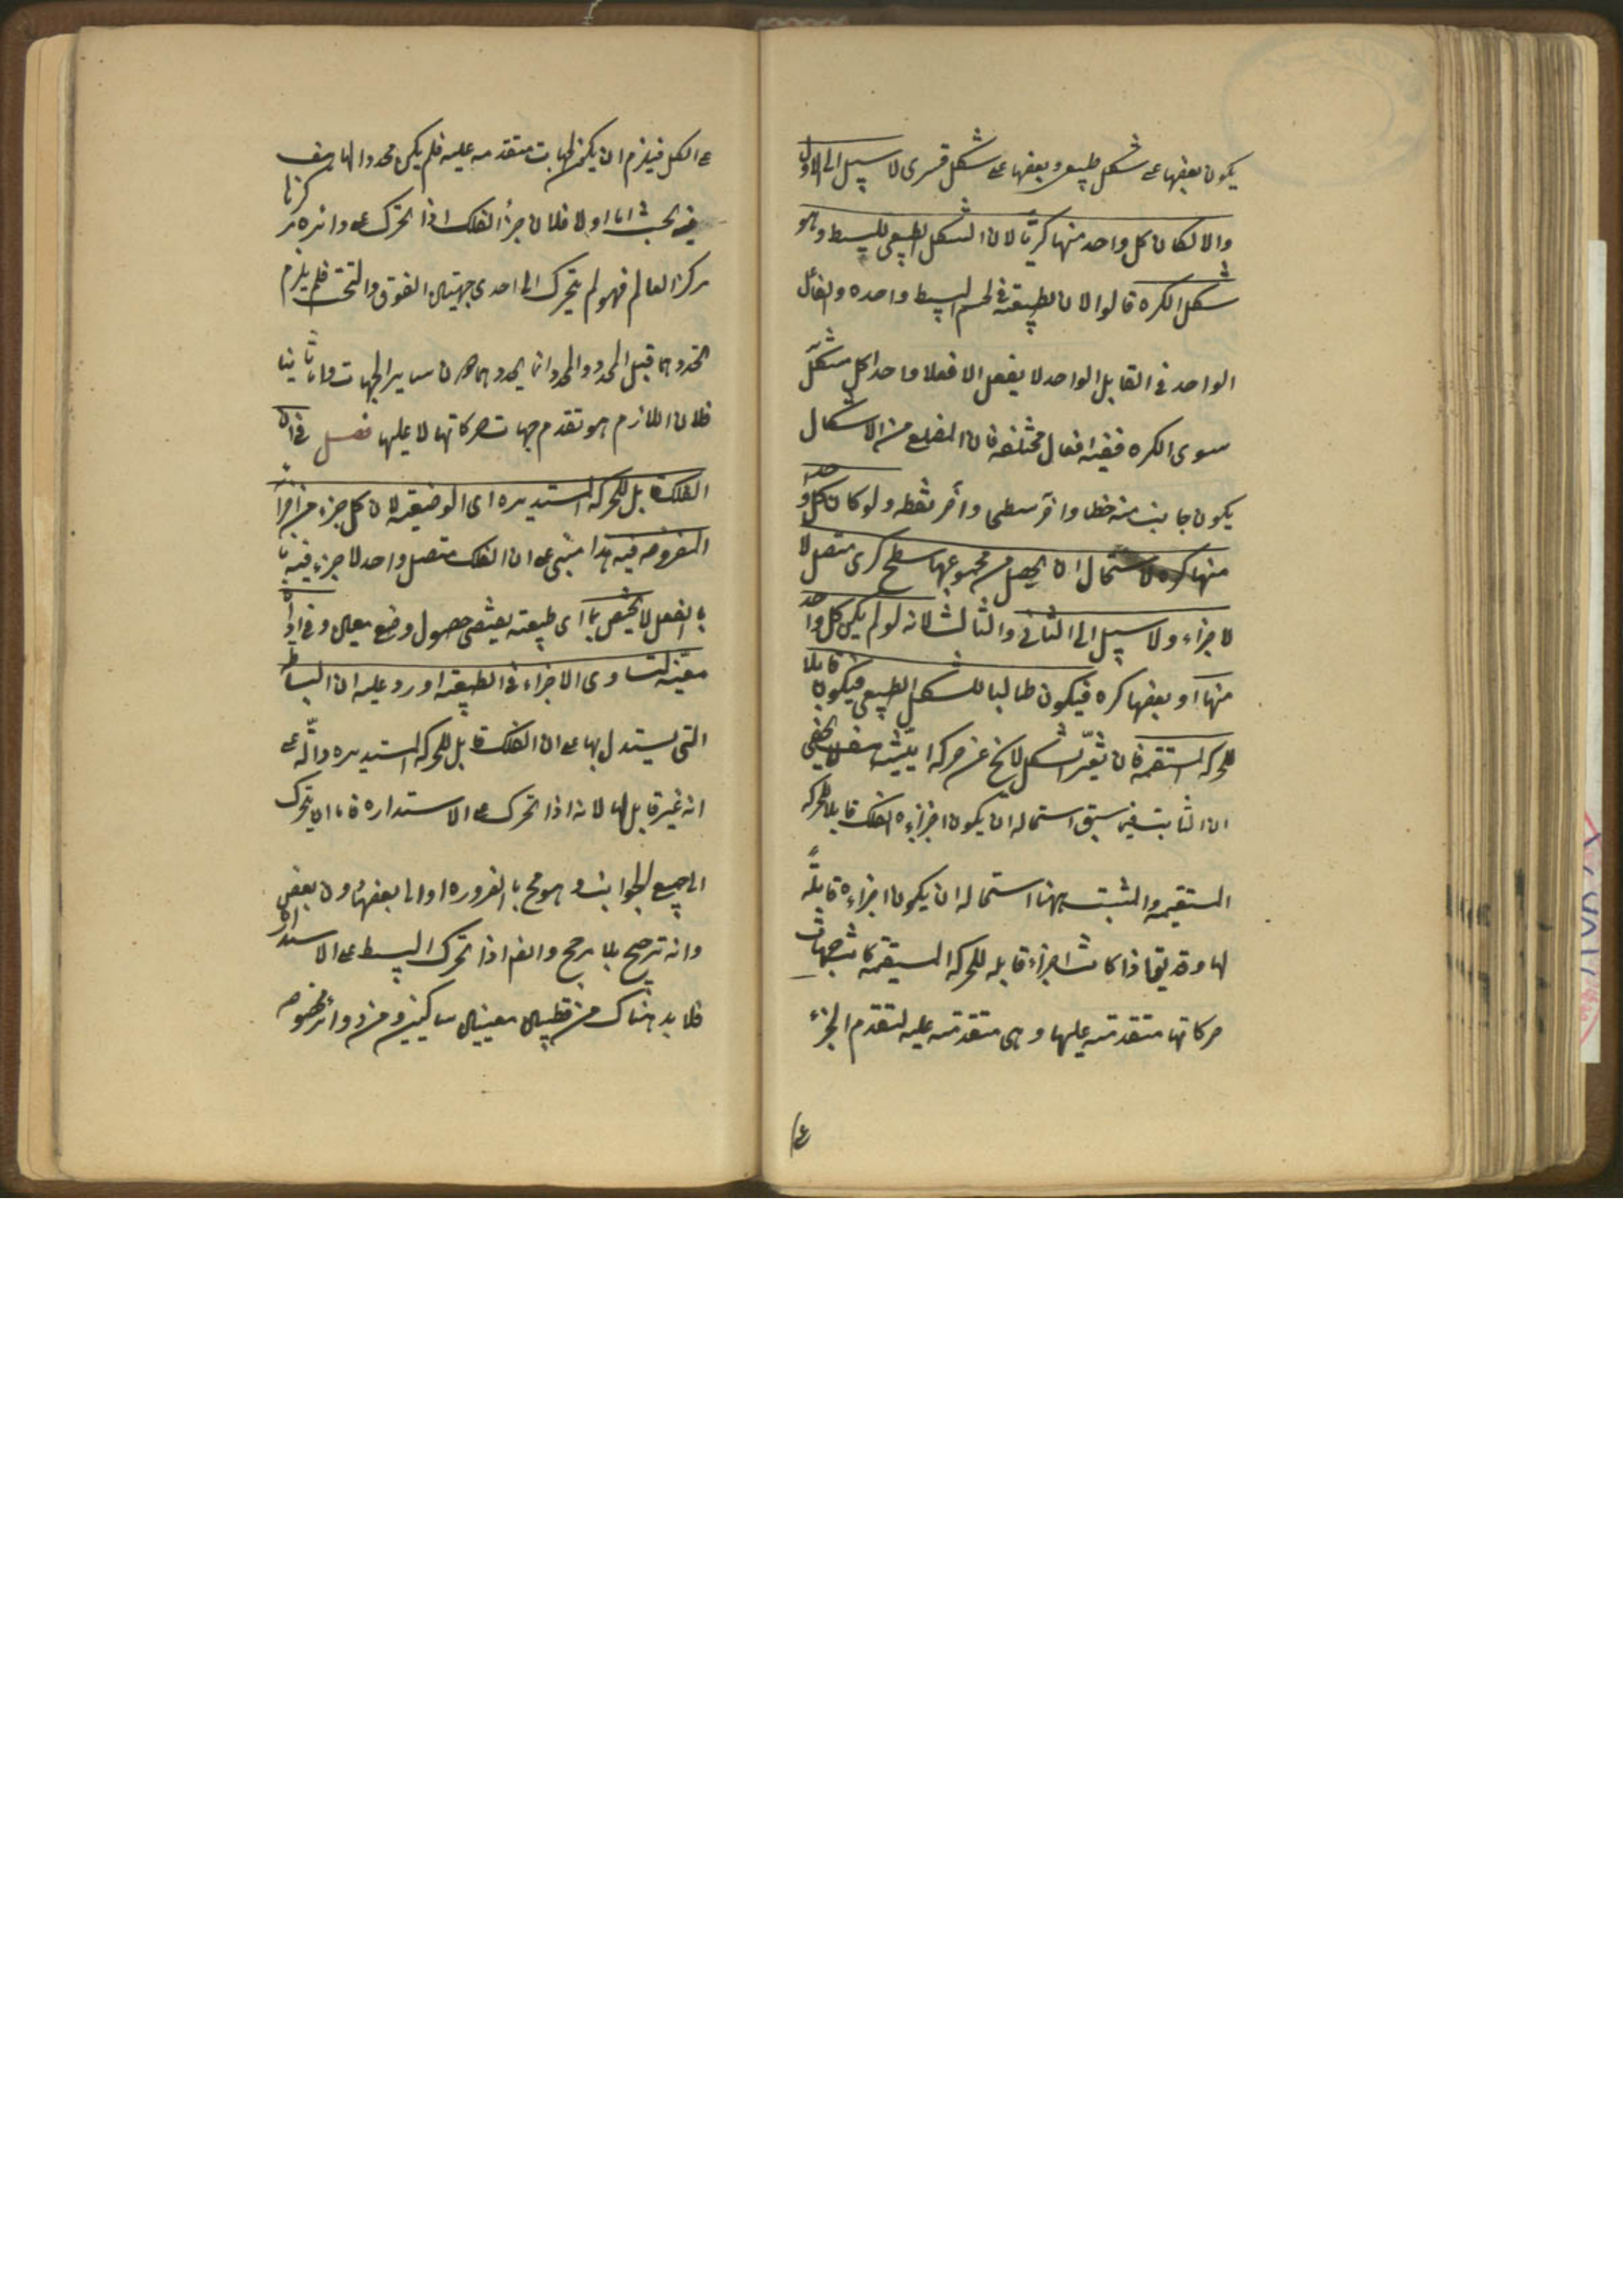 يكون بعضها على شكل طبيعى وبعضها على شكل قسرى لا سبيل الى الاول
والا لكان كل واحد منها كريا لان الشكل الطبيعى للبسيط وهو
شكل الكره قالوا لان الطبيعة فى الجسم البسيط واحده والفاعل
الواحد فى القابل الواحد لا يفعل الا فعلا واحدا وكل شكل
سوى الكره ففيه افعال مختلفه فان المضلع من الاشكال
يكون جانب منه خطا وآخر سطحا وآخر نقطه ولو كان كل واحد
منها كره لاستحال ان يحصل من مجموعها سطح كرى متصل الا
لاجزاء ولا سبيل الى الثانى والثالث لانه لو لم يكن كل واحد
منها او بعضها كره فيكون طالبا للشكل الطبيعى فيكون قابلا
للحركه المستقيمه فان تغير الشكل لا يخ عن حركة اينيه هف لا يخفى
ان الثابت فيما سبق استحاله ان يكون اجزاء الفلك قابلا للحركه
المستقيمه والمثبت ههنا استحاله ان يكون اجزاءه قابلة
لها وقد يقال اذا كانت اجزاءه قابله للحركه المستقيمه كانت جهات
حركاتها متقدمة عليها وهى متقدمة عليه لتقدم الجزء
على الكل فيلزم ان يكون الجهات متقدمه عليه فلم يكن محددا لها هف
فيه بحث اما اولا فلان جزء الفلك اذا تحرك على دائره مركزها
مركز العالم فهو لم يتحرك الى احدى جهتى الفوق والتحت فلم يلزم
تحددهما قبل المحدد والمحدد انما يحددهما دون ساير الجهات واما ثانيا
فلان اللازم هو تقدم جهات حركاتها لا عليها فصل فى ان
الفلك قابل للحركه المستديره اى الوضعيه لان كل جزء من اجزائه
المفروضه فيه هذا مبنى على ان الفلك متصل واحد لا جزء فيه
بالفعل لا يختص بما اى طبيعته يقتضى حصول وضع معين ومحاذاة
معينه لتساوى الاجزاء فى الطبيعه اورد عليه ان البساطه
التى يستدل بها على ان الفلك قابل للحركه المستديره دالّه على
انه غير قابل لها لانه اذا تحرك على الاستداره فاما ان يتحرك
الى جميع الجوانب وهو مح بالضروره او الى بعضها دون بعض
وانه ترجيح بلا مرجح وايضا اذا تحرك البسيط على الاستداره
فلا بد هناك من قطبين معينين ساكنين ومن دوائر مخصوصه